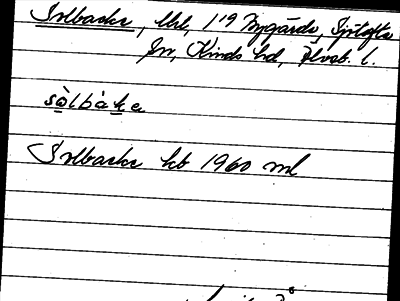 Solbacke, lht, 1¹⁹ Nygärde, Sjötofta
sn, Kinds hd, Älvsb. l.
sòlbàka
Solbacke kb 1960 ml